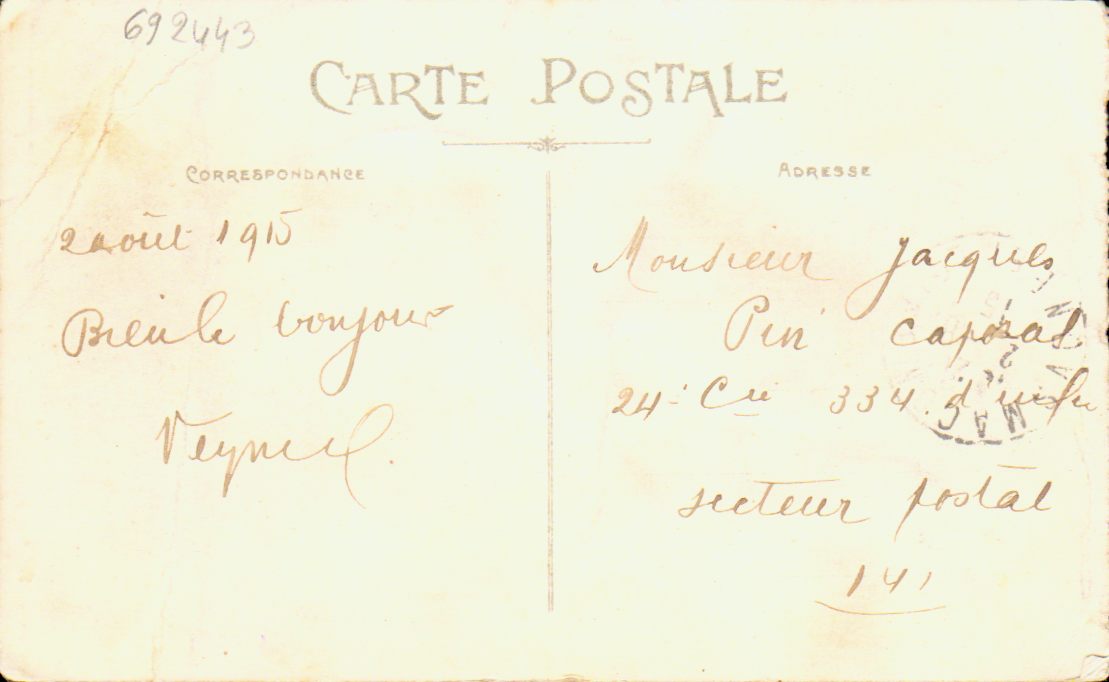 692443
CARTE POSTALE
CORRESPONDANCE
2 août 1915
bonjour
ADRESSE
Monsieur Jacques
Pin caporal
24e Cie 334 d'infie
secteur postal
141